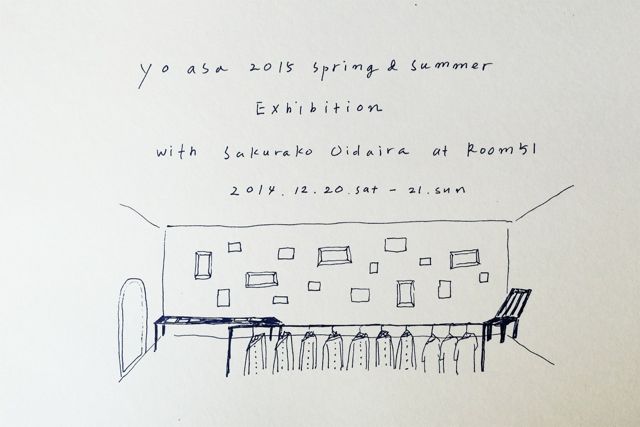 yo asa 2015 spring & summer
Exhibition
with Sakurako Oidaira at Room51
2014.12.20.sat - 21.sun